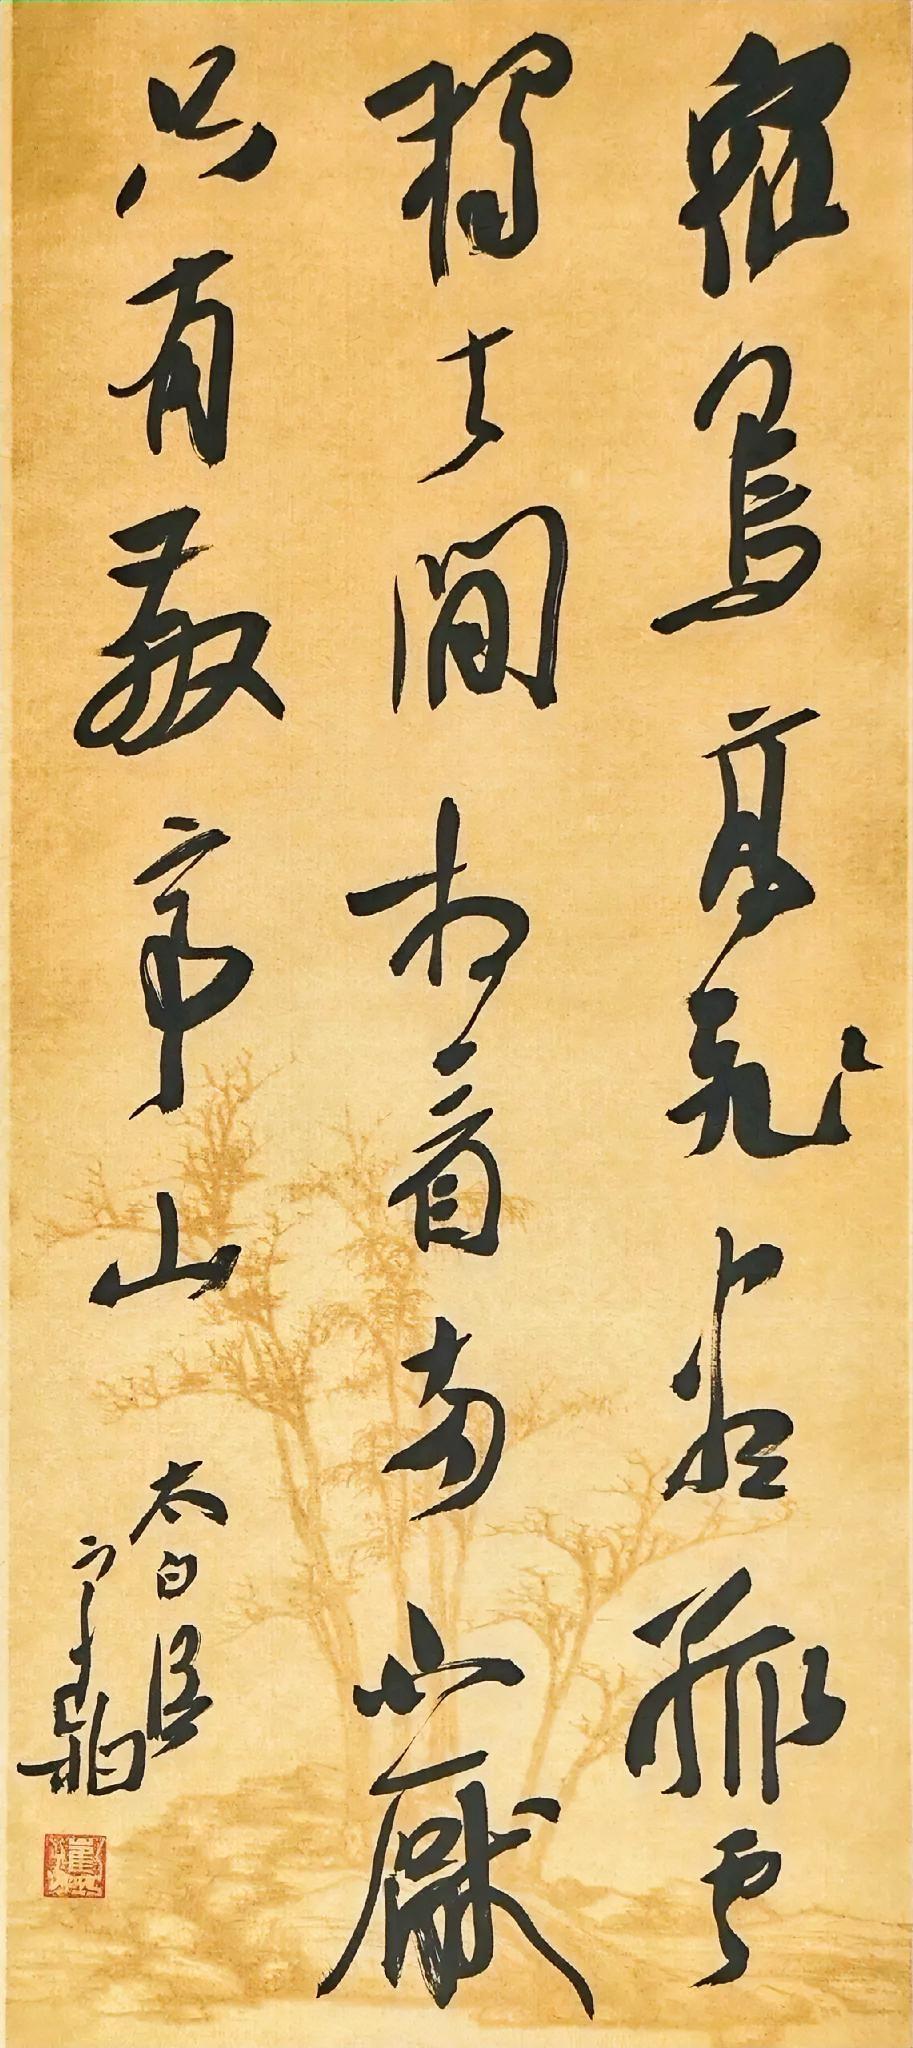 眾鳥高飛盡孤雲
獨去間相看兩不厭
只有敬亭山
太白